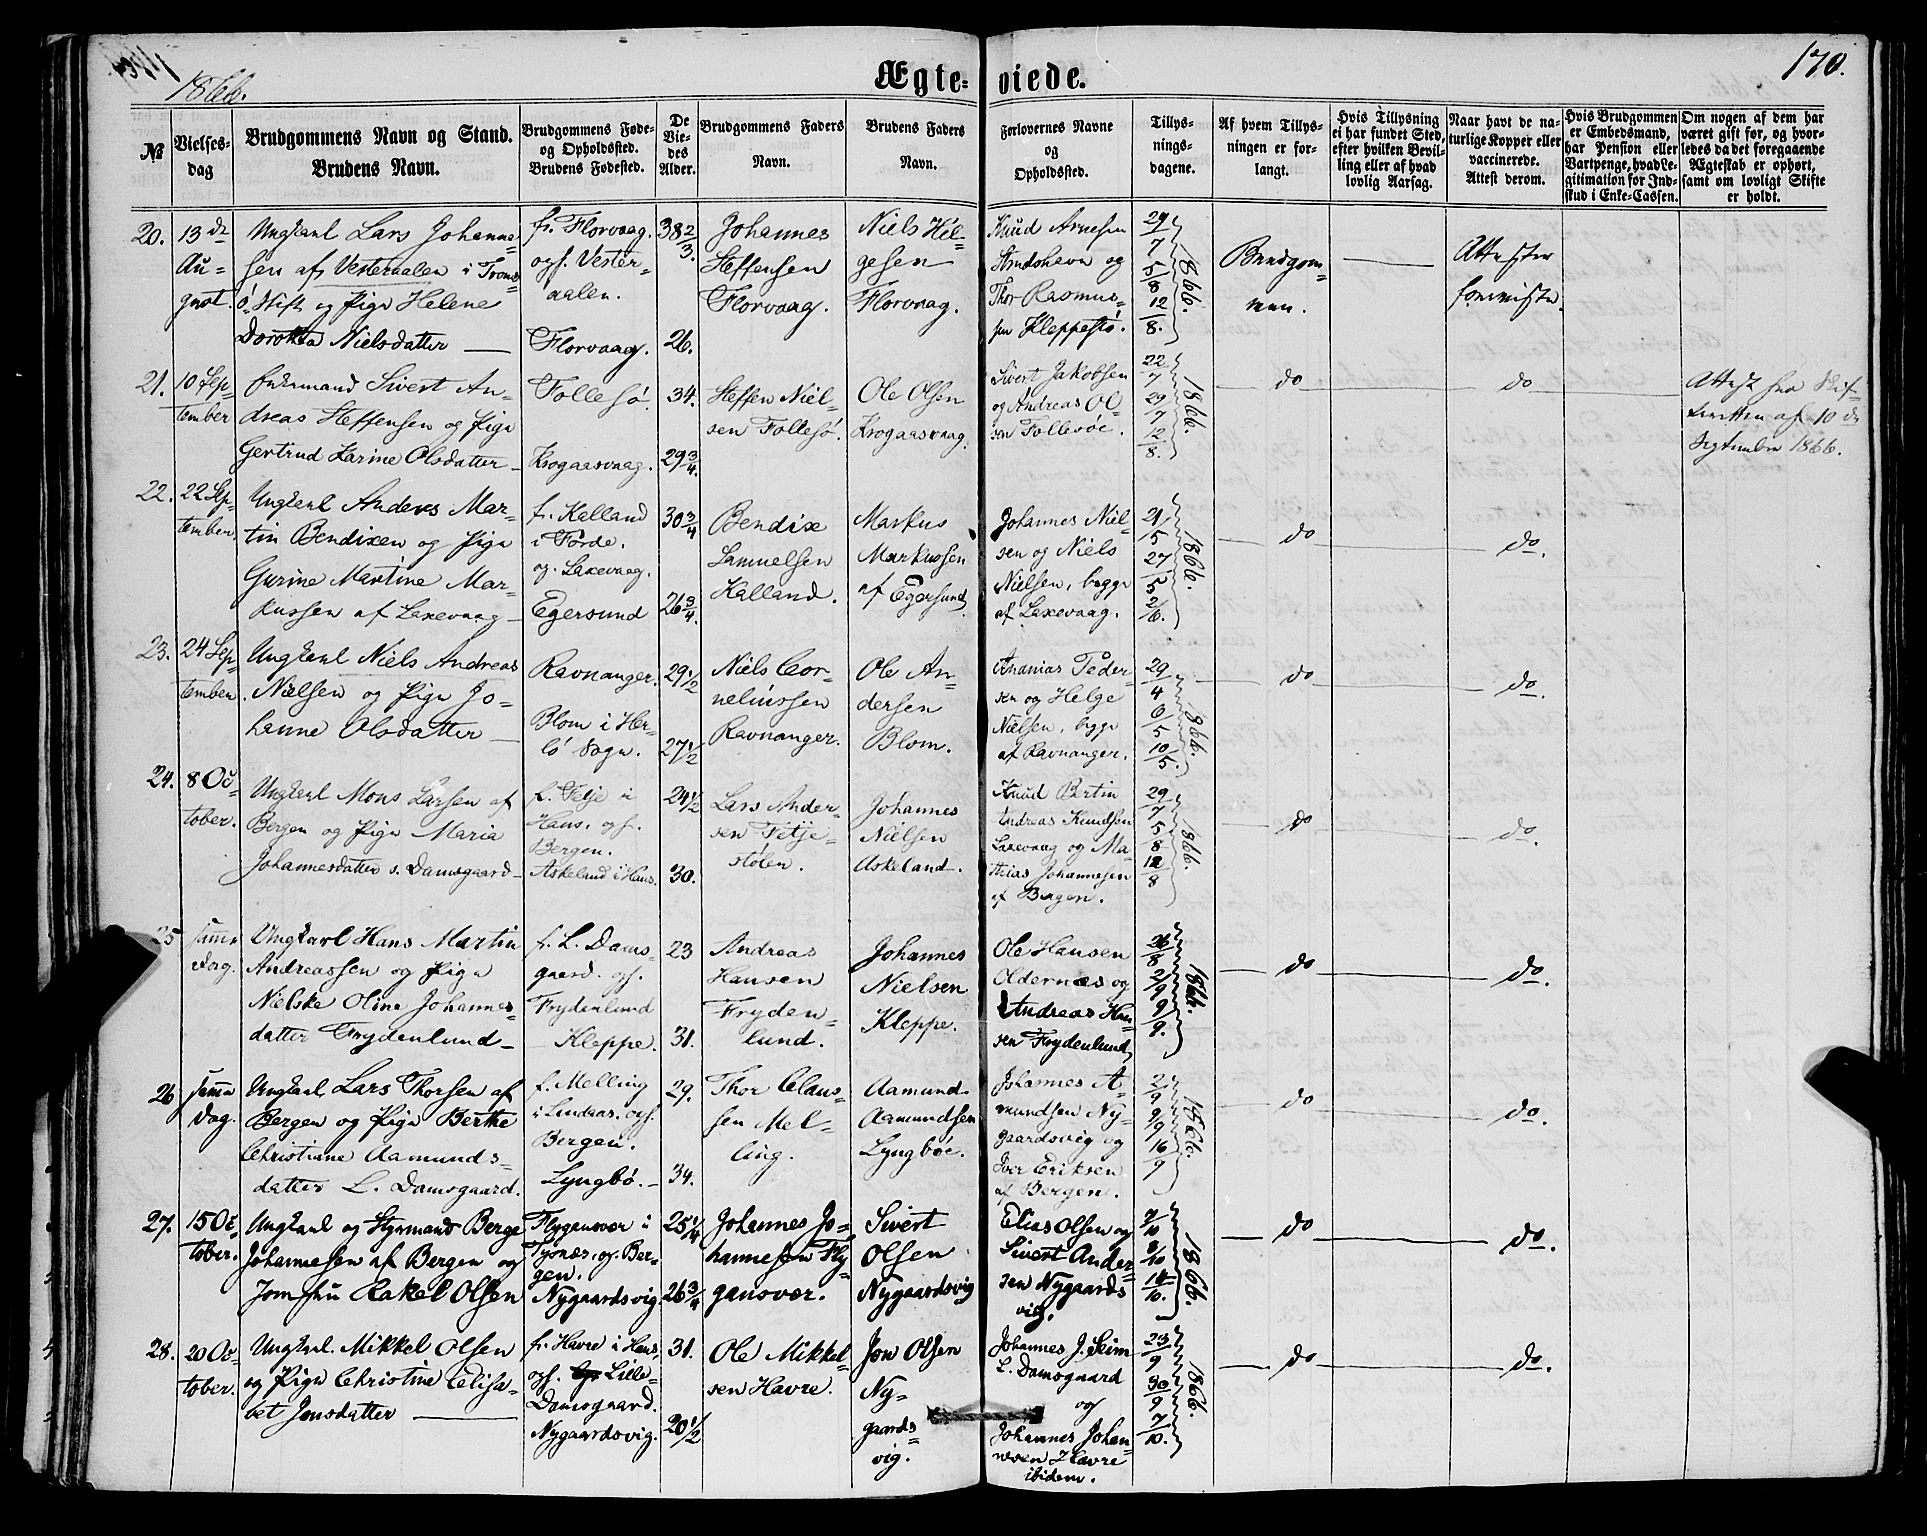 1866.
Ægte-viede.
170.
№
Vielses-
dag
Brudgommens Navn og Stand.
Brudens Navn.
Brudgommens Føde-
og Opholdsted.
Brudens Fødested.
De
Vie-
des
Alder.
Brudgommens Faders
Navn.
Brudens Faders
Navn.
Forlovernes Navne
og
Opholdsted.
Tillys-
nings-
dagene.
Af hvem Tillys-
ningen er for-
langt.
Hvis Tillysning
ei har fundet Sted,
efter hvilken Bevil-
ling eller af hvad
lovlig Aarsag.
Naar havt de na-
turlige Kopper eller
vaccinerede.
Attest derom.
Hvis Brudgommen
er Embedsmand,
har Pension eller
Vartpenge, hvad Le-
gitimation for Ind-
skud i Enke-Cassen.
Om nogen af dem har
været gift før, og hvor-
ledes da det foregaaende
Ægteskab er ophørt,
samt om lovligt Skifte
er holdt.
20.
13 de
Au-
gust.
Ungkarl Lars Johanne-
sen af Vesteraalen i Troms-
ö Stift og Pige Helene
Dorothea Nielsdatter
f. Florvaag.
ops. Vester-
aalen.
Florvaag.
38 2/3.
26.
Johannes
Steffensen
Florvaag.
Niels Hel-
gesen
Florvaag.
Knud Arnesen
Strudshavn og
Thor Rasmus-
sen Kleppestö.
29/7
5/8
12/8.
1866.
Brudgom-
men.
Attester
foreviste
21.
10 Sep-
tember
Enkemand Sivert An-
dreas Steffensen og Pige
Gertrud Karine Olsdatter
Follesö.
Krogaasvaag.
34.
29 3/4.
Steffen Niel-
sen Follesö.
Ole Olsen
Krogaasvaag.
Sivert Jakobsen
og Andreas Ol-
sen Follesöe.
22/7
29/7
12/8.
1866.
do
do
Attest fra Skif-
teretten af 10 de
September 1866.
22.
22 Sep-
tember
Ungkarl Anders Mar-
tin Bendixen og Pige
Gurine Martine Mar-
kussen af Laxevaag
f. Kalland
i Förde.
og. Laxevaag.
Egersund
30 3/4
26 3/4.
Bendix
Samuelsen
Kalland.
Markus
Markussen
af Egersund.
Johannes Niel-
sen og Niels
Nielsen, begge
af Laxevaag.
21/5
27/5
2/6.
1866.
do
do.
23.
24 Sep-
tember
Ungkarl Niels Andreas
Nielsen og Pige Jo-
hanne Olsdatter
Ravnanger.
Blom i Her-
lö Sogn.
29 1/2
27 1/2
Niels Cor-
neliussen
Ravnanger.
Ole An-
dersen
Blom.
Ananias Peder-
sen og Helge
Nielsen, begge
af Ravnanger.
29/4
6/5
10/5.
1866.
do
do.
24.
8 Oc-
tober.
Ungkarl Mons Larsen af
Bergen og Pige Maria
Johannesdatter s. Damsgaard
f. Fetje i
Haus. ops.
Bergen.
Askeland i Haus.
24 1/2
30.
Lars Ander-
sen Fetje-
stölen.
Johannes
Nielsen
Askeland.
Knud Bertin
Andreas Knudsen
Laxevaag og Ma-
thias Johannesen
af Bergen.
29/7
5/8
12/8
1866.
do
do.
25
samme
Dag.
Ungkarl Hans Martin
Andreassen og Pige
Nielske Oline Johannes-
datter Frydenlund
f. L. Dams-
gaard. ops.
Frydenlund
Kleppe.
23
31.
Andreas
Hansen
Fryden-
lund.
Johannes
Nielsen
Kleppe.
Ole Hansen
Oldernæs og
Andreas Han-
sen Frydenlund
26/8
2/9
9/9.
1866.
do
do.
26
samme
Dag.
Ungkarl Lars Thorsen af
Bergen og Pige Berthe
Christiane Aamunds-
datter L. Damsgaard.
f. Melling
i Lindaas. ops.
Bergen.
Lyngbö.
29.
34.
Thor Claus-
sen Mel-
ling.
Aamund
Aamundsen
Lyngböe.
Johannes A-
mundsen Ny-
gaardsvig og
Iver Eriksen
af Bergen.
2/9
9/9
16/9
1866.
do
do.
27.
15 Oc-
tober.
Ungkarl og Styrmand Berge
Johannesen af Bergen og
Jomfru Rakel Olsen
Flygansvær i
Tysnæs, og. Ber-
gen.
Nygaardsvig.
25 1/4
26 3/4
Johannes Jo-
hannesen Fly-
gansvær.
Sivert
Olsen
Nygaardsvig
Elias Olsen og
Sivert Ander-
sen Nygaards
vig.
7/10
8/10
14/10.
1866.
do
do.
28.
20 Oc-
tober.
Ungkarl Mikkel Olsen
og Pige Christine Elisa-
bet Jonsdatter
f. Havre i Haus,
ops. Lille-
Damsgaard.
Nygaardsvig.
31.
20 1/2
Ole Mikkel-
sen Havre.
Jon Olsen
Ny-
gaards-
vig.
Johannes J. Seim
L. Damsgaard
og
Johannes Johan-
nesen Havre
ibidem.
23/9
30/9
7/10.
1866.
do
do.